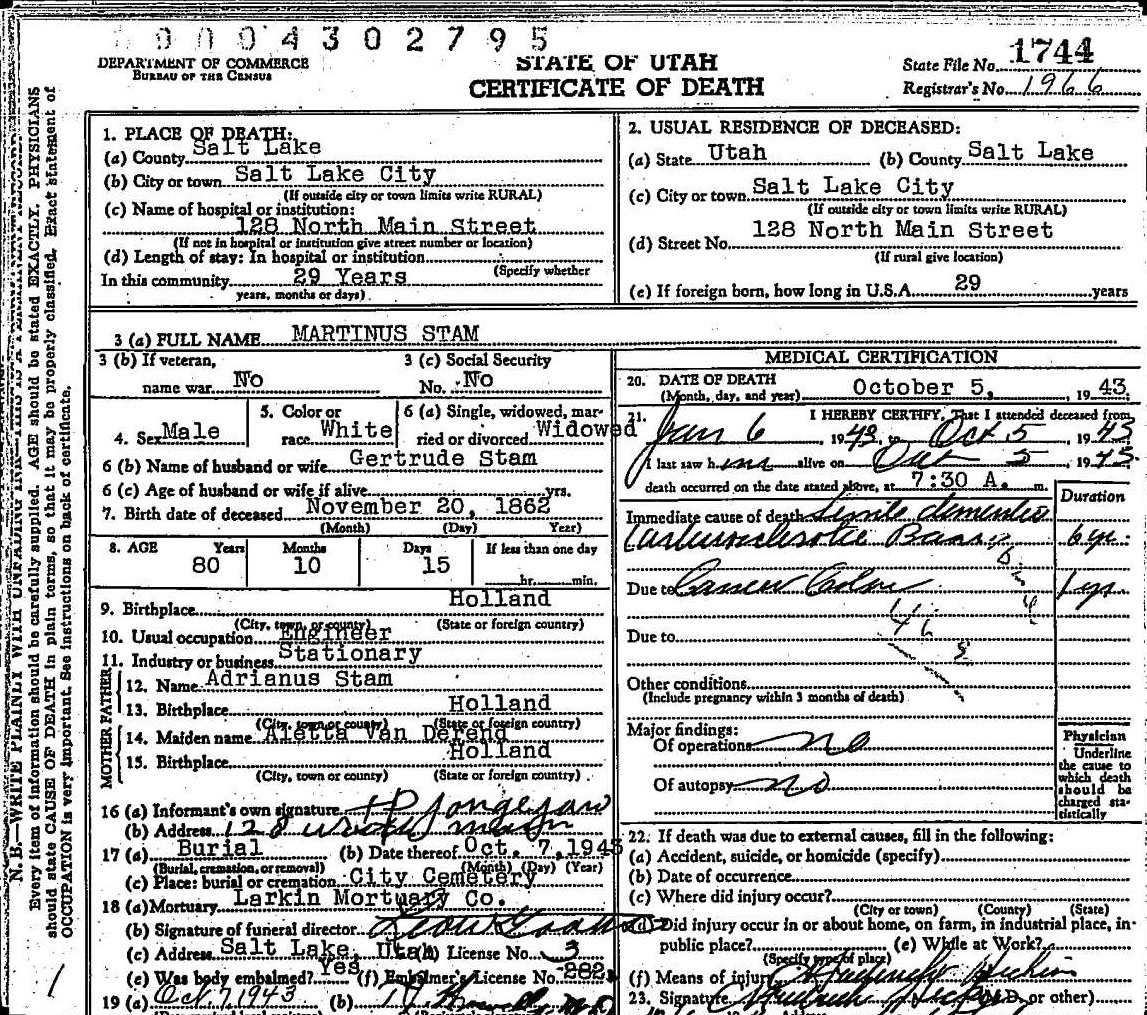 0004302795
DEPARTMENT OF COMMERCE
BUREAU OF THE CENSUS
STATE OF UTAH
CERTIFICATE OF DEATH
State File No. 1744
Registrar's No. 1966
N. B.—WRITE PLAINLY WITH UNFADING INK—THIS IS A PERMANENT RECORD
Every item of information should be carefully supplied. AGE should be stated EXACTLY. PHYSICIANS
should state CAUSE OF DEATH in plain terms, so that it may be properly classified. Exact statement of
OCCUPATION is very important. See instructions on back of certificate.
1. PLACE OF DEATH:
(a) County Salt Lake
(b) City or town Salt Lake City
(If outside city or town limits write RURAL)
(c) Name of hospital or institution:
128 North Main Street
(If not in hospital or institution give street number or location)
(d) Length of stay: In hospital or institution
(Specify whether
In this community 29 Years
years, months or days)
2. USUAL RESIDENCE OF DECEASED:
(a) State Utah (b) County Salt Lake
(c) City or town Salt Lake City
(If outside city or town limits write RURAL)
(d) Street No. 128 North Main Street
(If rural give location)
(e) If foreign born, how long in U.S.A. 29 years
3 (a) FULL NAME MARTINUS STAM
3 (b) If veteran,
name war No
3 (c) Social Security
No. No
4. Sex Male
5. Color or
race White
6 (a) Single, widowed, mar-
ried or divorced Widowed
6 (b) Name of husband or wife Gertrude Stam
6 (c) Age of husband or wife if alive yrs.
7. Birth date of deceased November 20, 1862
(Month) (Day) Year)
8. AGE Years Months Days If less than one day
80 10 15 hr. min.
9. Birthplace Holland
(City, town, or county) (State or foreign country)
10. Usual occupation Engineer
11. Industry or business Stationary
FATHER
12. Name Adrianus Stam
13. Birthplace Holland
(City, town or county) (State or foreign country)
MOTHER
14. Maiden name Aletta Van Derend
15. Birthplace Holland
(City, town or county) (State or foreign country)
16 (a) Informant's own signature
(b) Address 128
17 (a) Burial (b) Date thereof Oct. 7, 1943
(Burial, cremation, or removal) (Month) (Day) (Year)
(c) Place: burial or cremation City Cemetery
18 (a) Mortuary Larkin Mortuary Co.
(b) Signature of funeral director
(c) Address Salt Lake, Utah License No. 3
(e) Was body embalmed? Yes (f) Embalmer's License No. 282
19 (a) Oct. 7 1943 (b)
MEDICAL CERTIFICATION
20. DATE OF DEATH
(Month, day, and year) October 5, 1943
21. I HEREBY CERTIFY, That I attended deceased from
Jan 6, 1943 to Oct 5 1943
I last saw him alive on Oct 5 1943
death occurred on the date stated above, at 7:30 A. m.
Duration
Immediate cause of death Senile dementia
6 yr.
Due to Cancer Colon 1 yr.
Due to
Other conditions
(Include pregnancy within 3 months of death)
Major findings:
Of operations no
Of autopsy no
Physician
Underline
the cause to
which death
should be
charged sta-
tistically
22. If death was due to external causes, fill in the following:
(a) Accident, suicide, or homicide (specify)
(b) Date of occurrence
(c) Where did injury occur?
(City or town) (County) (State)
(d) Did injury occur in or about home, on farm, in industrial place, in-
public place? (e) While at Work?
(Specify type of place)
(f) Means of injury
23. Signature (M.D. or other)